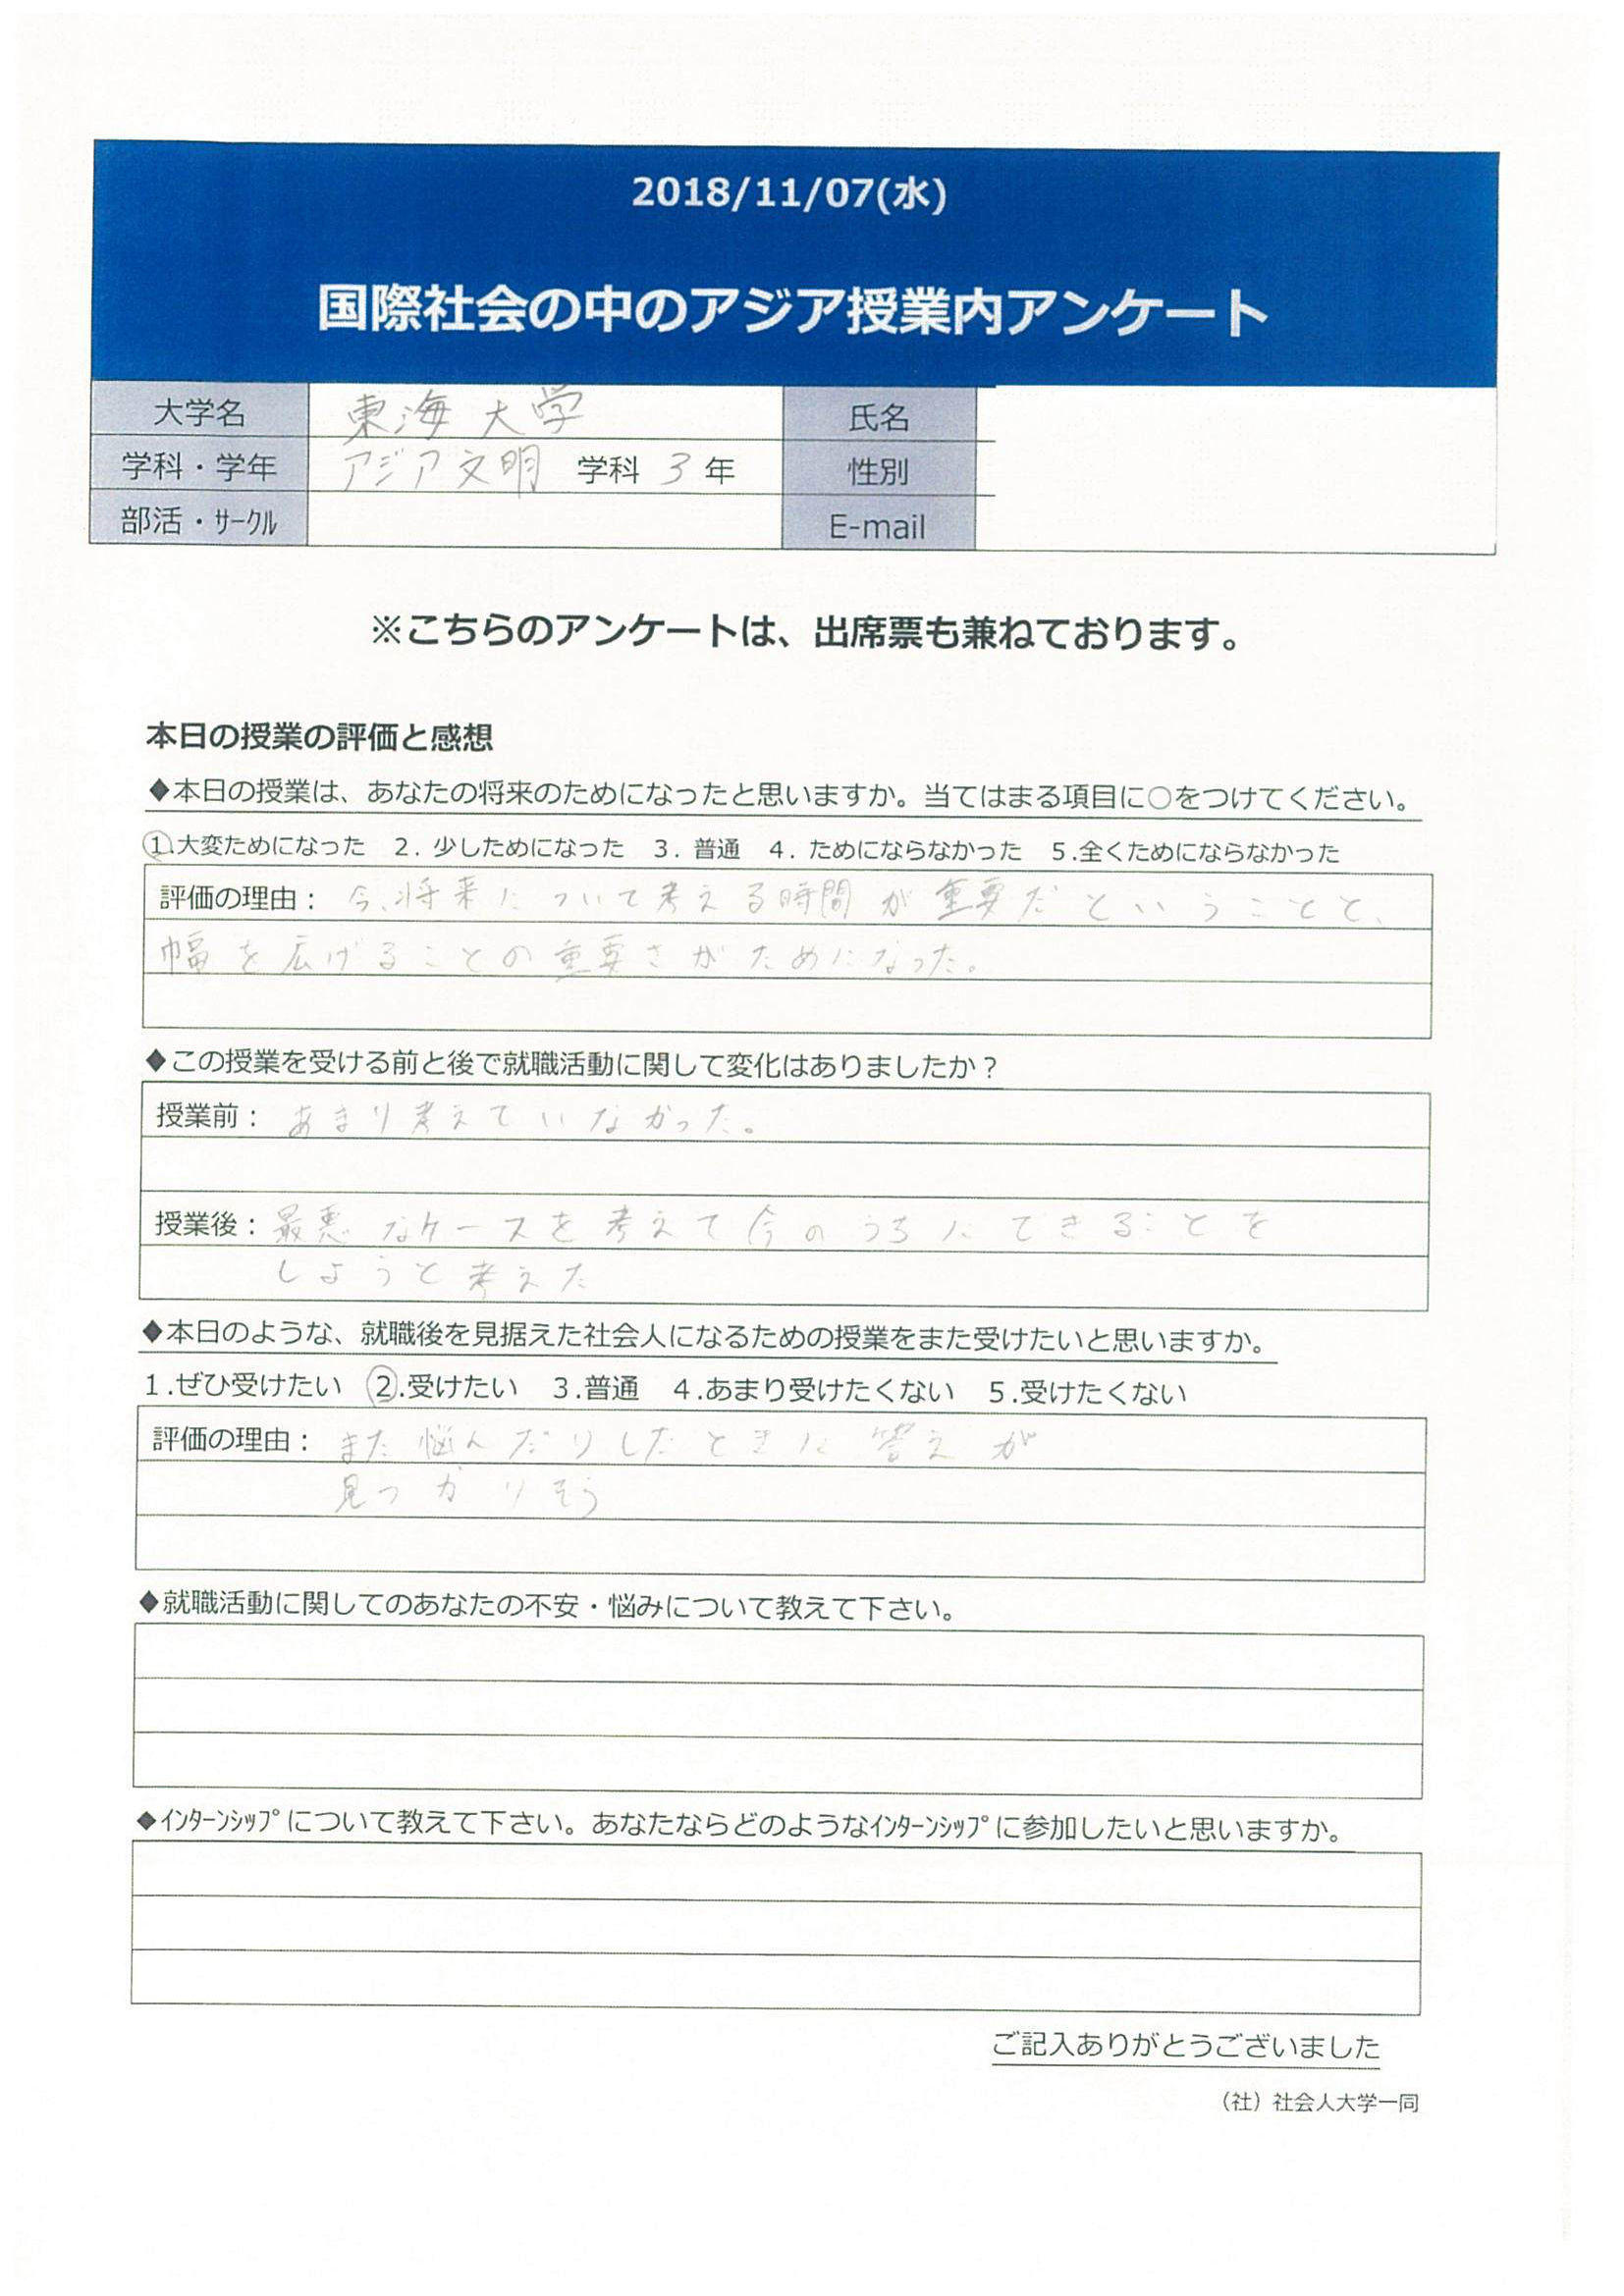 2018/11/07(水)
国際社会の中のアジア授業内アンケート
大学名 東海大学 氏名
学科・学年 アジア文明 学科 3 年 性別
部活・サークル E-mail
※こちらのアンケートは、出席票も兼ねております。
本日の授業の評価と感想
◆本日の授業は、あなたの将来のためになったと思いますか。当てはまる項目に○をつけてください。
1.大変ためになった 2. 少しためになった 3. 普通 4. ためにならなかった 5.全くためにならなかった
評価の理由： 今、将来について考える時間が重要だということと、
幅を広げることの重要さがためになった。
◆この授業を受ける前と後で就職活動に関して変化はありましたか？
授業前： あまり考えていなかった。
授業後： 最悪なケースを考えて今のうちにできることを
しようと考えた
◆本日のような、就職後を見据えた社会人になるための授業をまた受けたいと思いますか。
1.ぜひ受けたい 2.受けたい 3.普通 4.あまり受けたくない 5.受けたくない
評価の理由： また悩んだりしたときに答えが
見つかりそう
◆就職活動に関してのあなたの不安・悩みについて教えて下さい。
◆インターンシップについて教えて下さい。あなたならどのようなインターンシップに参加したいと思いますか。
ご記入ありがとうございました
（社）社会人大学一同